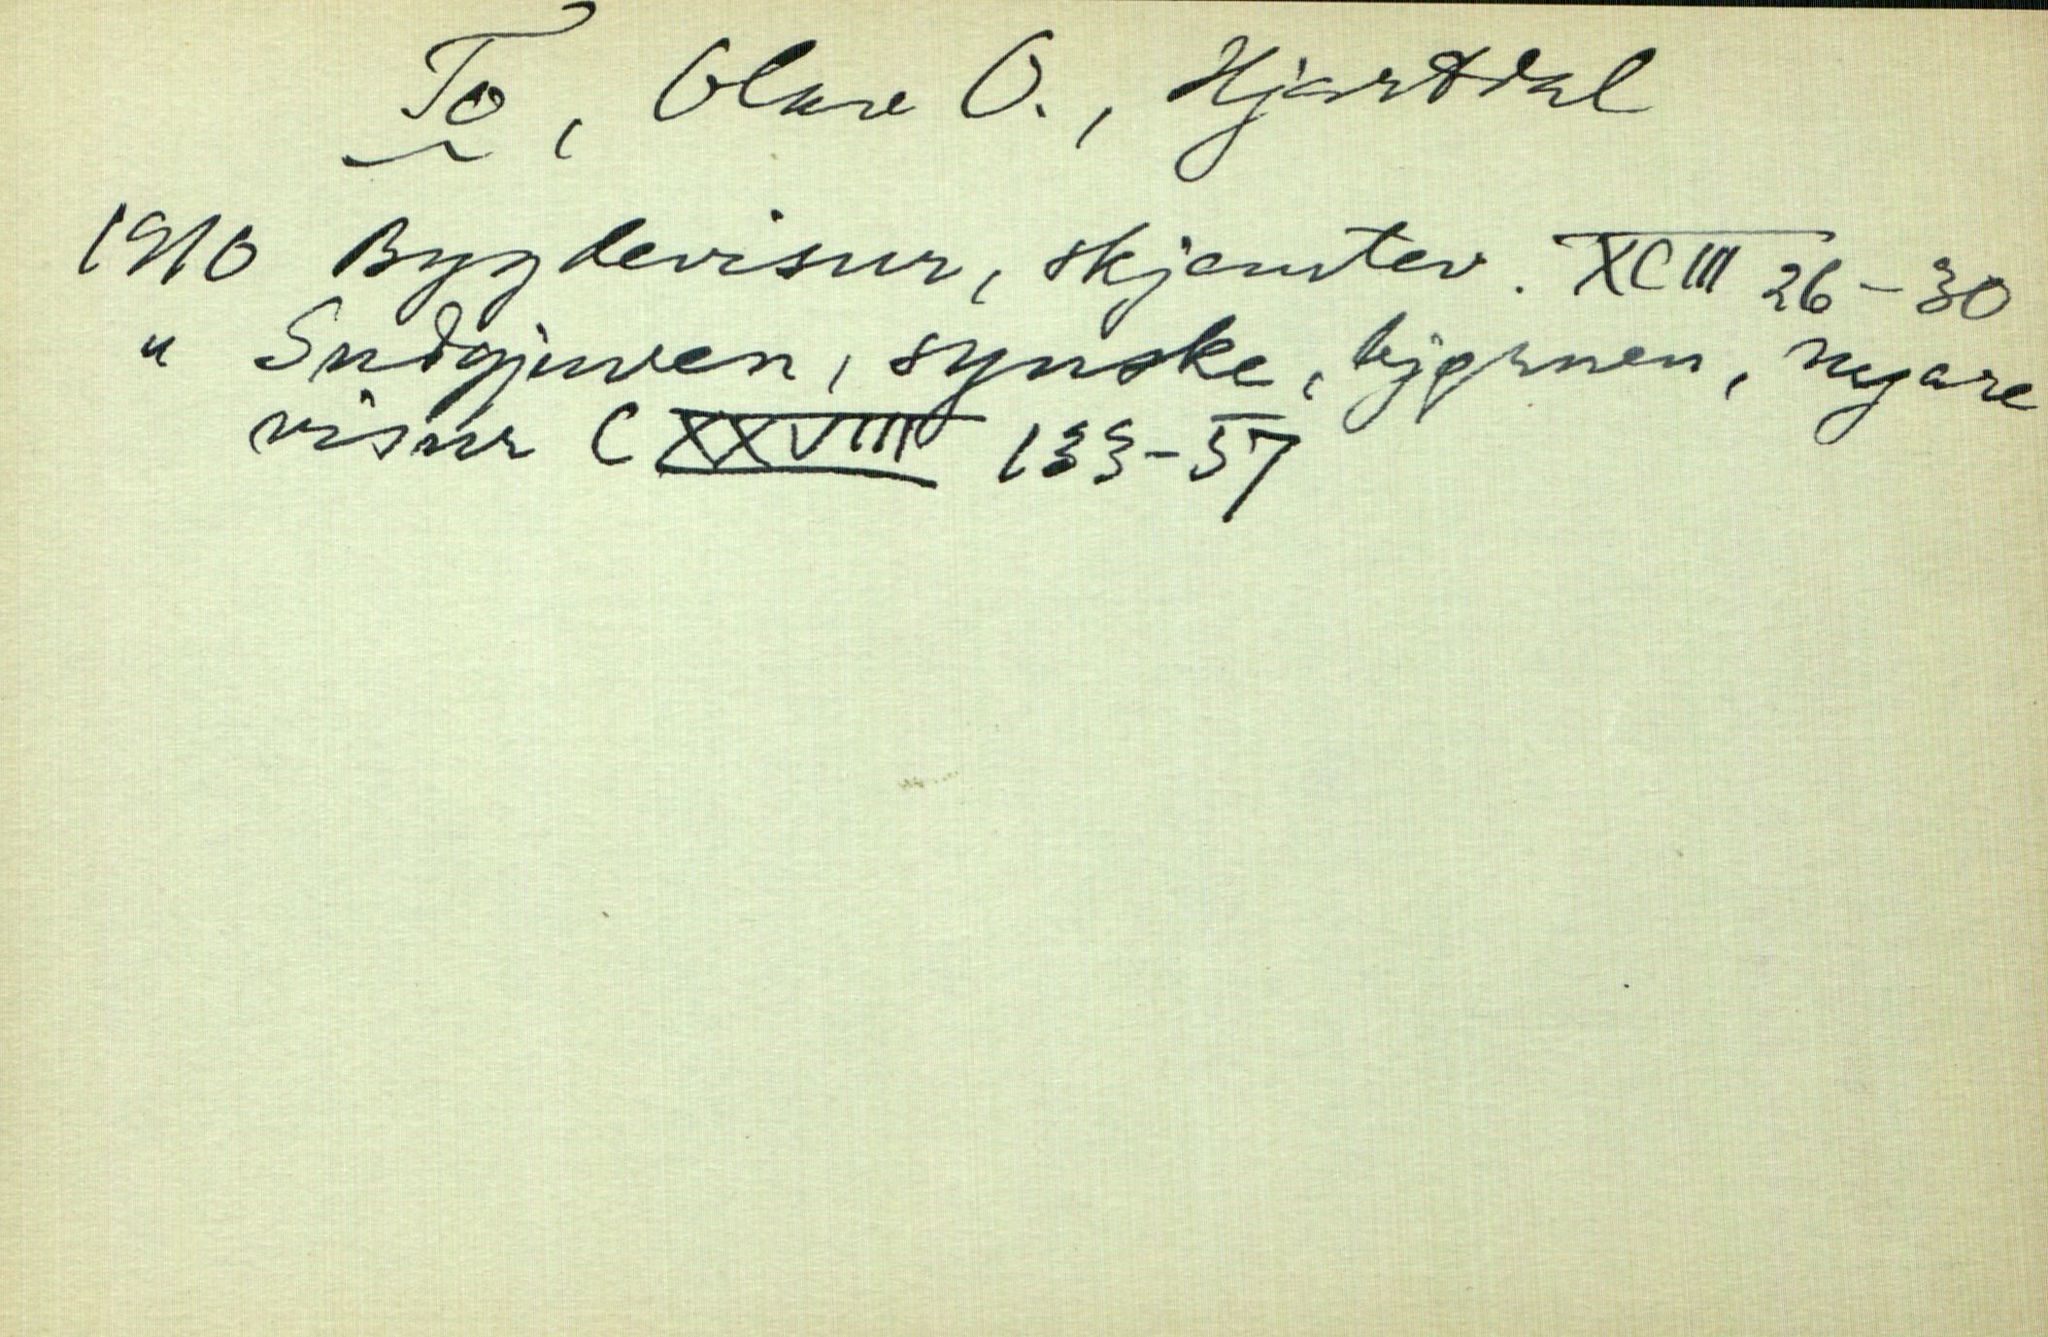 To, Olav O., Hjartdal
1910 Bygdevisur, skjemtev. XCIII 26-30
" Sudgjuven, synske, bjørnen, nyare
visur CXXVIII 133-57